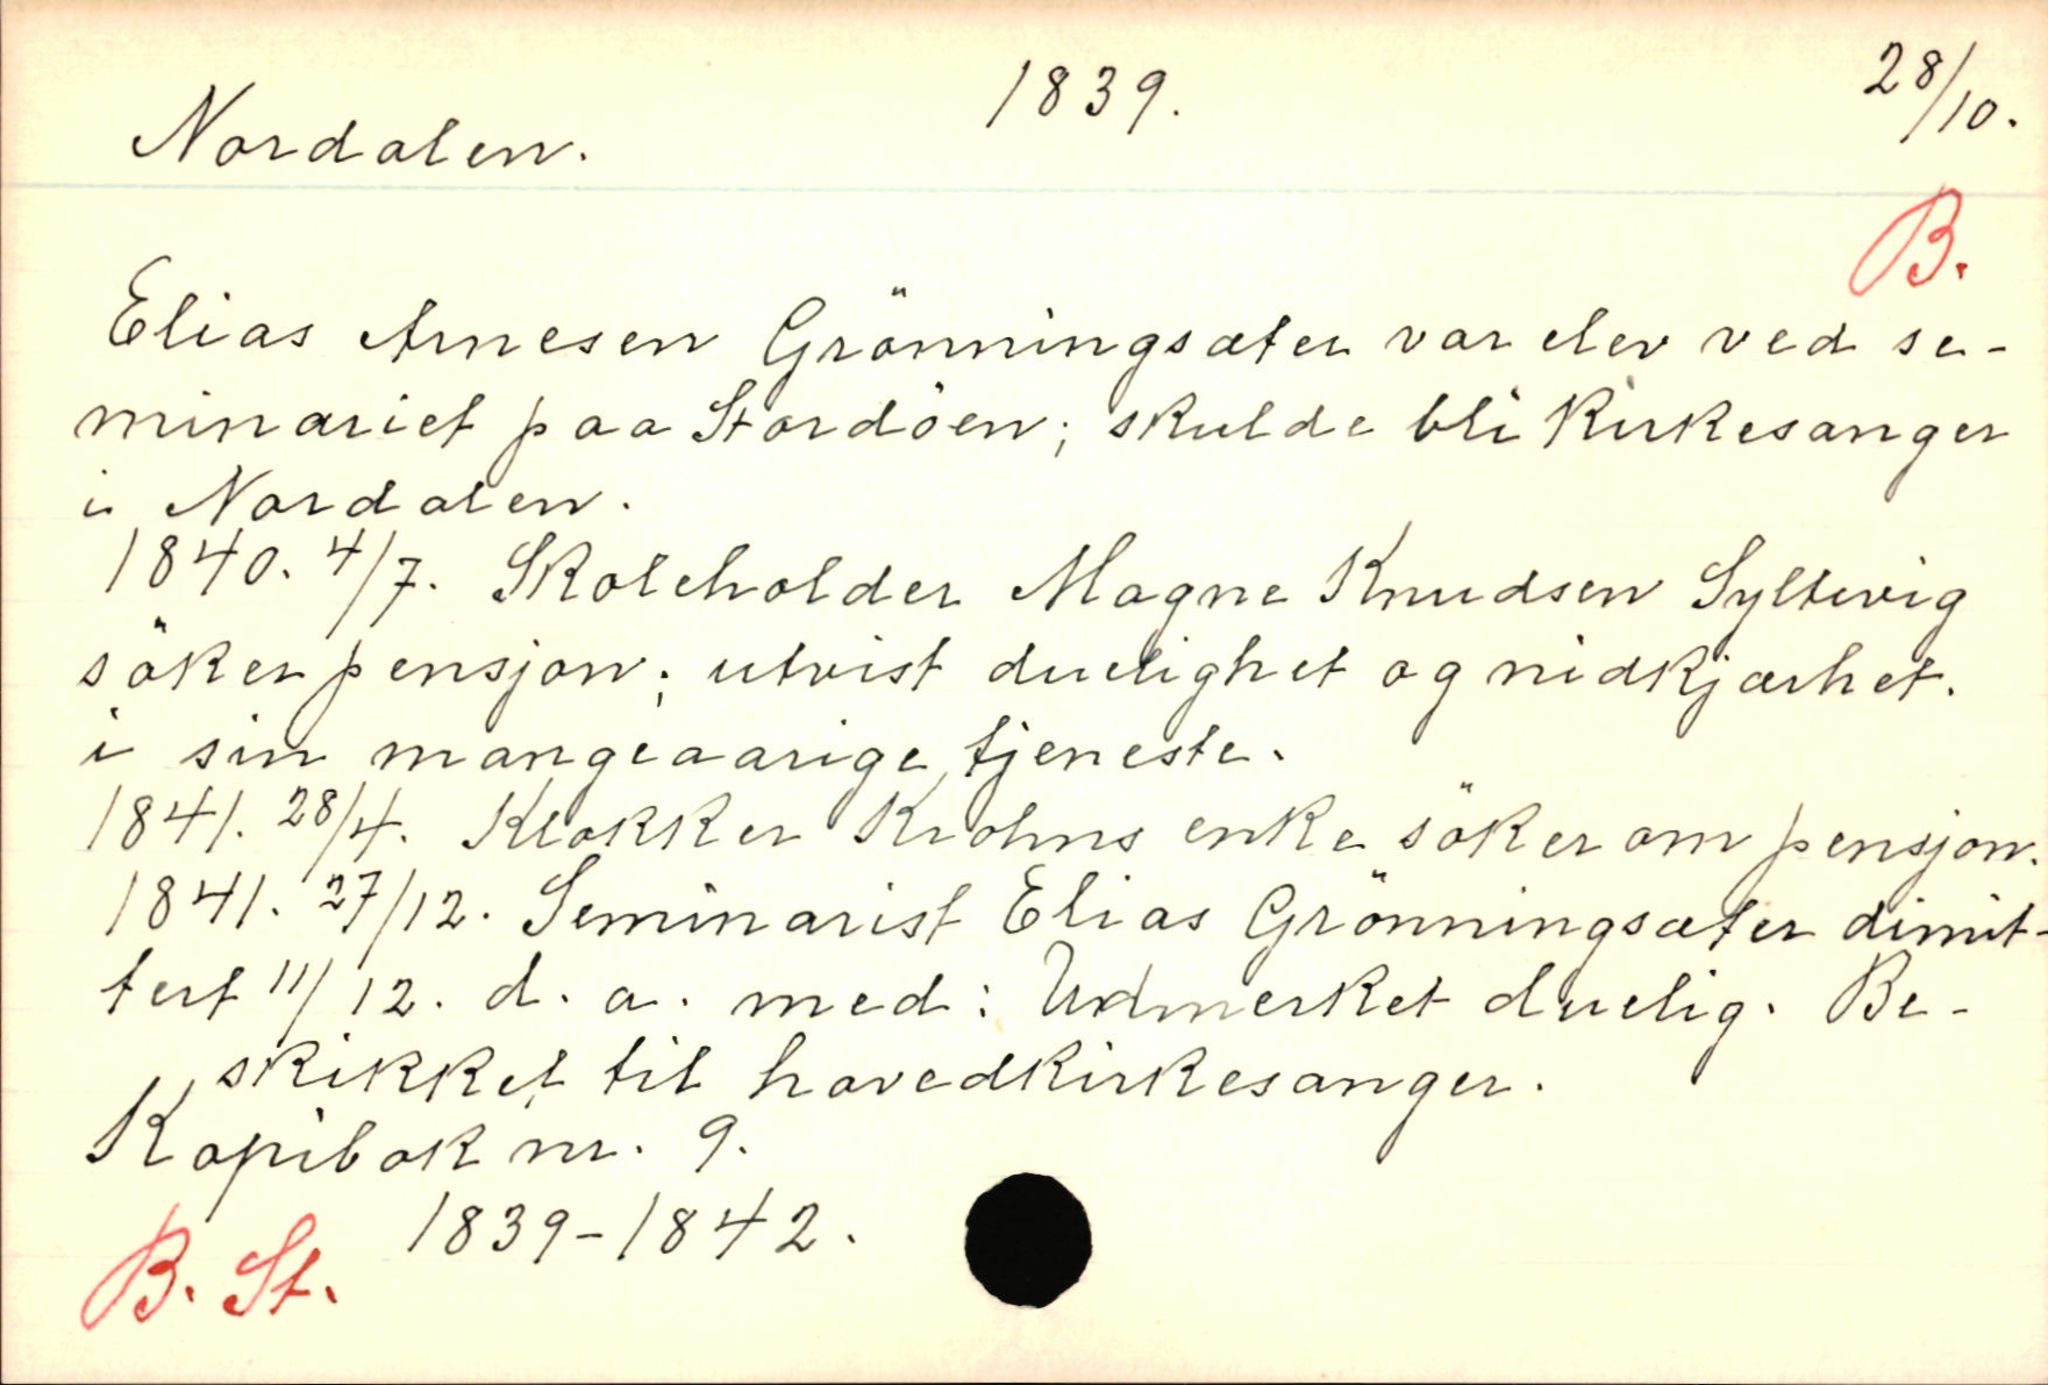 Nordalen. 1839. 28/10.
B.
Elias Arnesen Grönningsæter var elev ved se-
minariet paa Stordöen; skulde bli kirkesanger
i Nordalen.
1840. 4/7. Skoleholder Magne Knudsen Syltevig
söker pensjon; utvist duelighet og nidkjærhet.
i sin mangeaarige tjeneste.
1841. 28/4. Klokker Krohns enke söker om pensjon.
1841. 27/12. Seminarist Elias Grönningsæter dimit-
tert 11/12. d. a. med: Udmerket duelig. Be-
skikket til hovedkirkesanger.
Kopibok nr. 9.
1839-1842.
B. St.